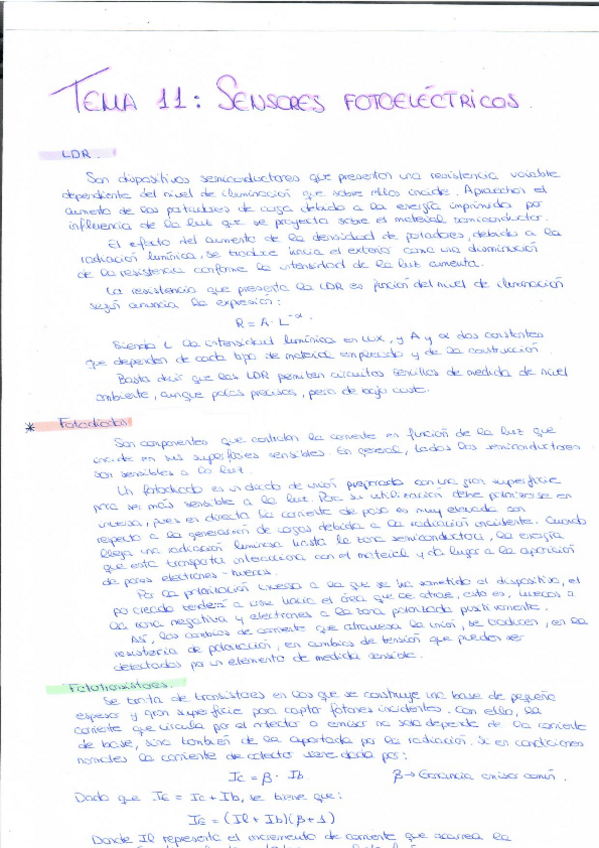 TEMA 11: SENSORES FOTOELÉCTRICOS.
LDR.
Son dispositivos semiconductores que presentan una resistencia variable
dependiente del nivel de iluminación que sobre ellos incide. Aprovechan el
aumento de los portadores de carga debido a la energía imprimida por
influencia de la luz que se proyecta sobre el material semiconductor.
El efecto del aumento de la densidad de portadores, debido a la
radiación lumínica, se traduce hacia el exterior como una disminución
de la resistencia conforme la intensidad de la luz aumenta.
La resistencia que presenta la LDR es función del nivel de iluminación
según anuncia la expresión:
R = A · L^-α.
Siendo L la intensidad lumínica en lux, y A y α dos constantes
que dependen de cada tipo de material empleado y de la construcción.
Basta decir que las LDR permiten circuitos sencillos de medida de nivel
ambiente, aunque pocos precisos, pero de bajo custe.
* Fotodiodos
Son componentes que controlan la corriente en función de la luz que
incide en sus superficies sensibles. En general, todos los semiconductores
son sensibles a la luz.
Un fotodiodo es un diodo de unión preparado con una gran superficie
para ser más sensible a la luz. Para su utilización debe polarizarse en
inversa, pues en directa la corriente de paso es muy elevada con
respecto a la generación de cargas debida a la radiación incidente. Cuando
llega una radiación luminosa hasta la zona semiconductora, la energía
que esta transporta interacciona con el material y da lugar a la aparición
de pares electrones-huecos.
Por la polarización inversa a la que se ha sometido el dispositivo, el
par creado tenderá a unirse hacia el área que le atrae, esto es, huecos a
la zona negativa y electrones a la zona polarizada positivamente.
Así, los cambios de corriente que atraviesa la unión, se traducen, en la
resistencia de polarización, en cambios de tensión que pueden ser
detectados por un elemento de medida sensible.
Fototransistores.
Se trata de transistores en los que se construye una base de pequeño
espesor y gran superficie para captar fotones incidentes. Con ello, la
corriente que circula por el colector a emisor no solo depende de la corriente
de base, sino también de la aportada por la radiación. Si en condiciones
normales la corriente de colector viene dada por:
Ic = β · Ib. β → Ganancia emisor común.
Dado que IE = Ic + Ib, se tiene que:
IE = (Il + Ib)(β + 1)
Donde Il representa el incremento de corriente que acarrea la